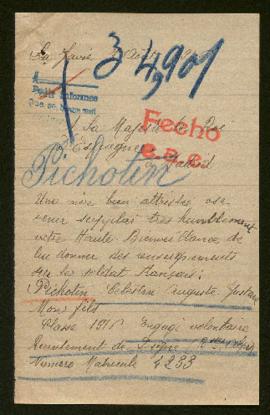 34,901
Fecho
Sa Majesté le Roi
Espagne
Madrid
Pichotin
Une mère bien attristée ose
venir supplier très humblement
votre Haute Bienveillance de
lui donner des renseignements
sur le soldat français:
Pichotin Célestin Auguste Gustave
Mon fils
Classe 1916 Engagé volontaire
Recrutement de
Numéro Matricule 4233